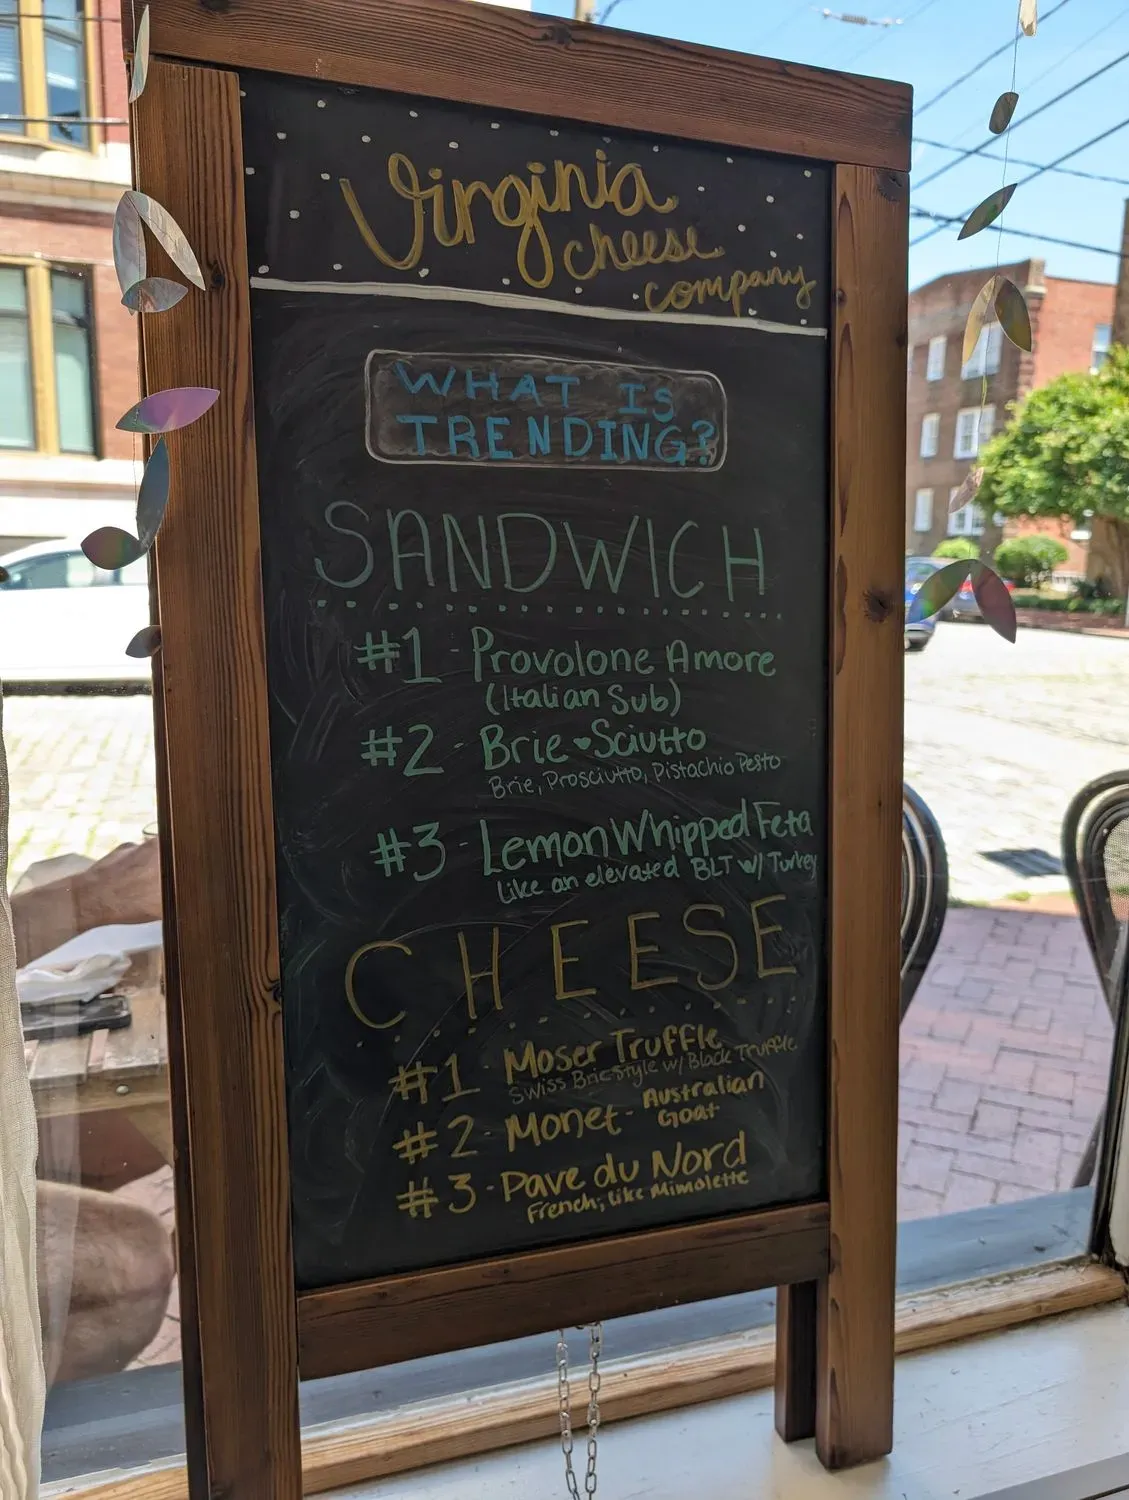 Virginia
cheese
company
WHAT IS
TRENDING?
SANDWICH
#1 - Provolone Amore
(Italian Sub)
#2 - Brie ♥ Sciutto
Brie, Prosciutto, Pistachio Pesto
#3 - Lemon Whipped Feta
Like an elevated BLT w/ Turkey
CHEESE
#1 - Moser Truffle
Swiss Brie Style w/ Black Truffle
#2 - Monet - Australian
Goat
#3 - Pave du Nord
French; like Mimolette